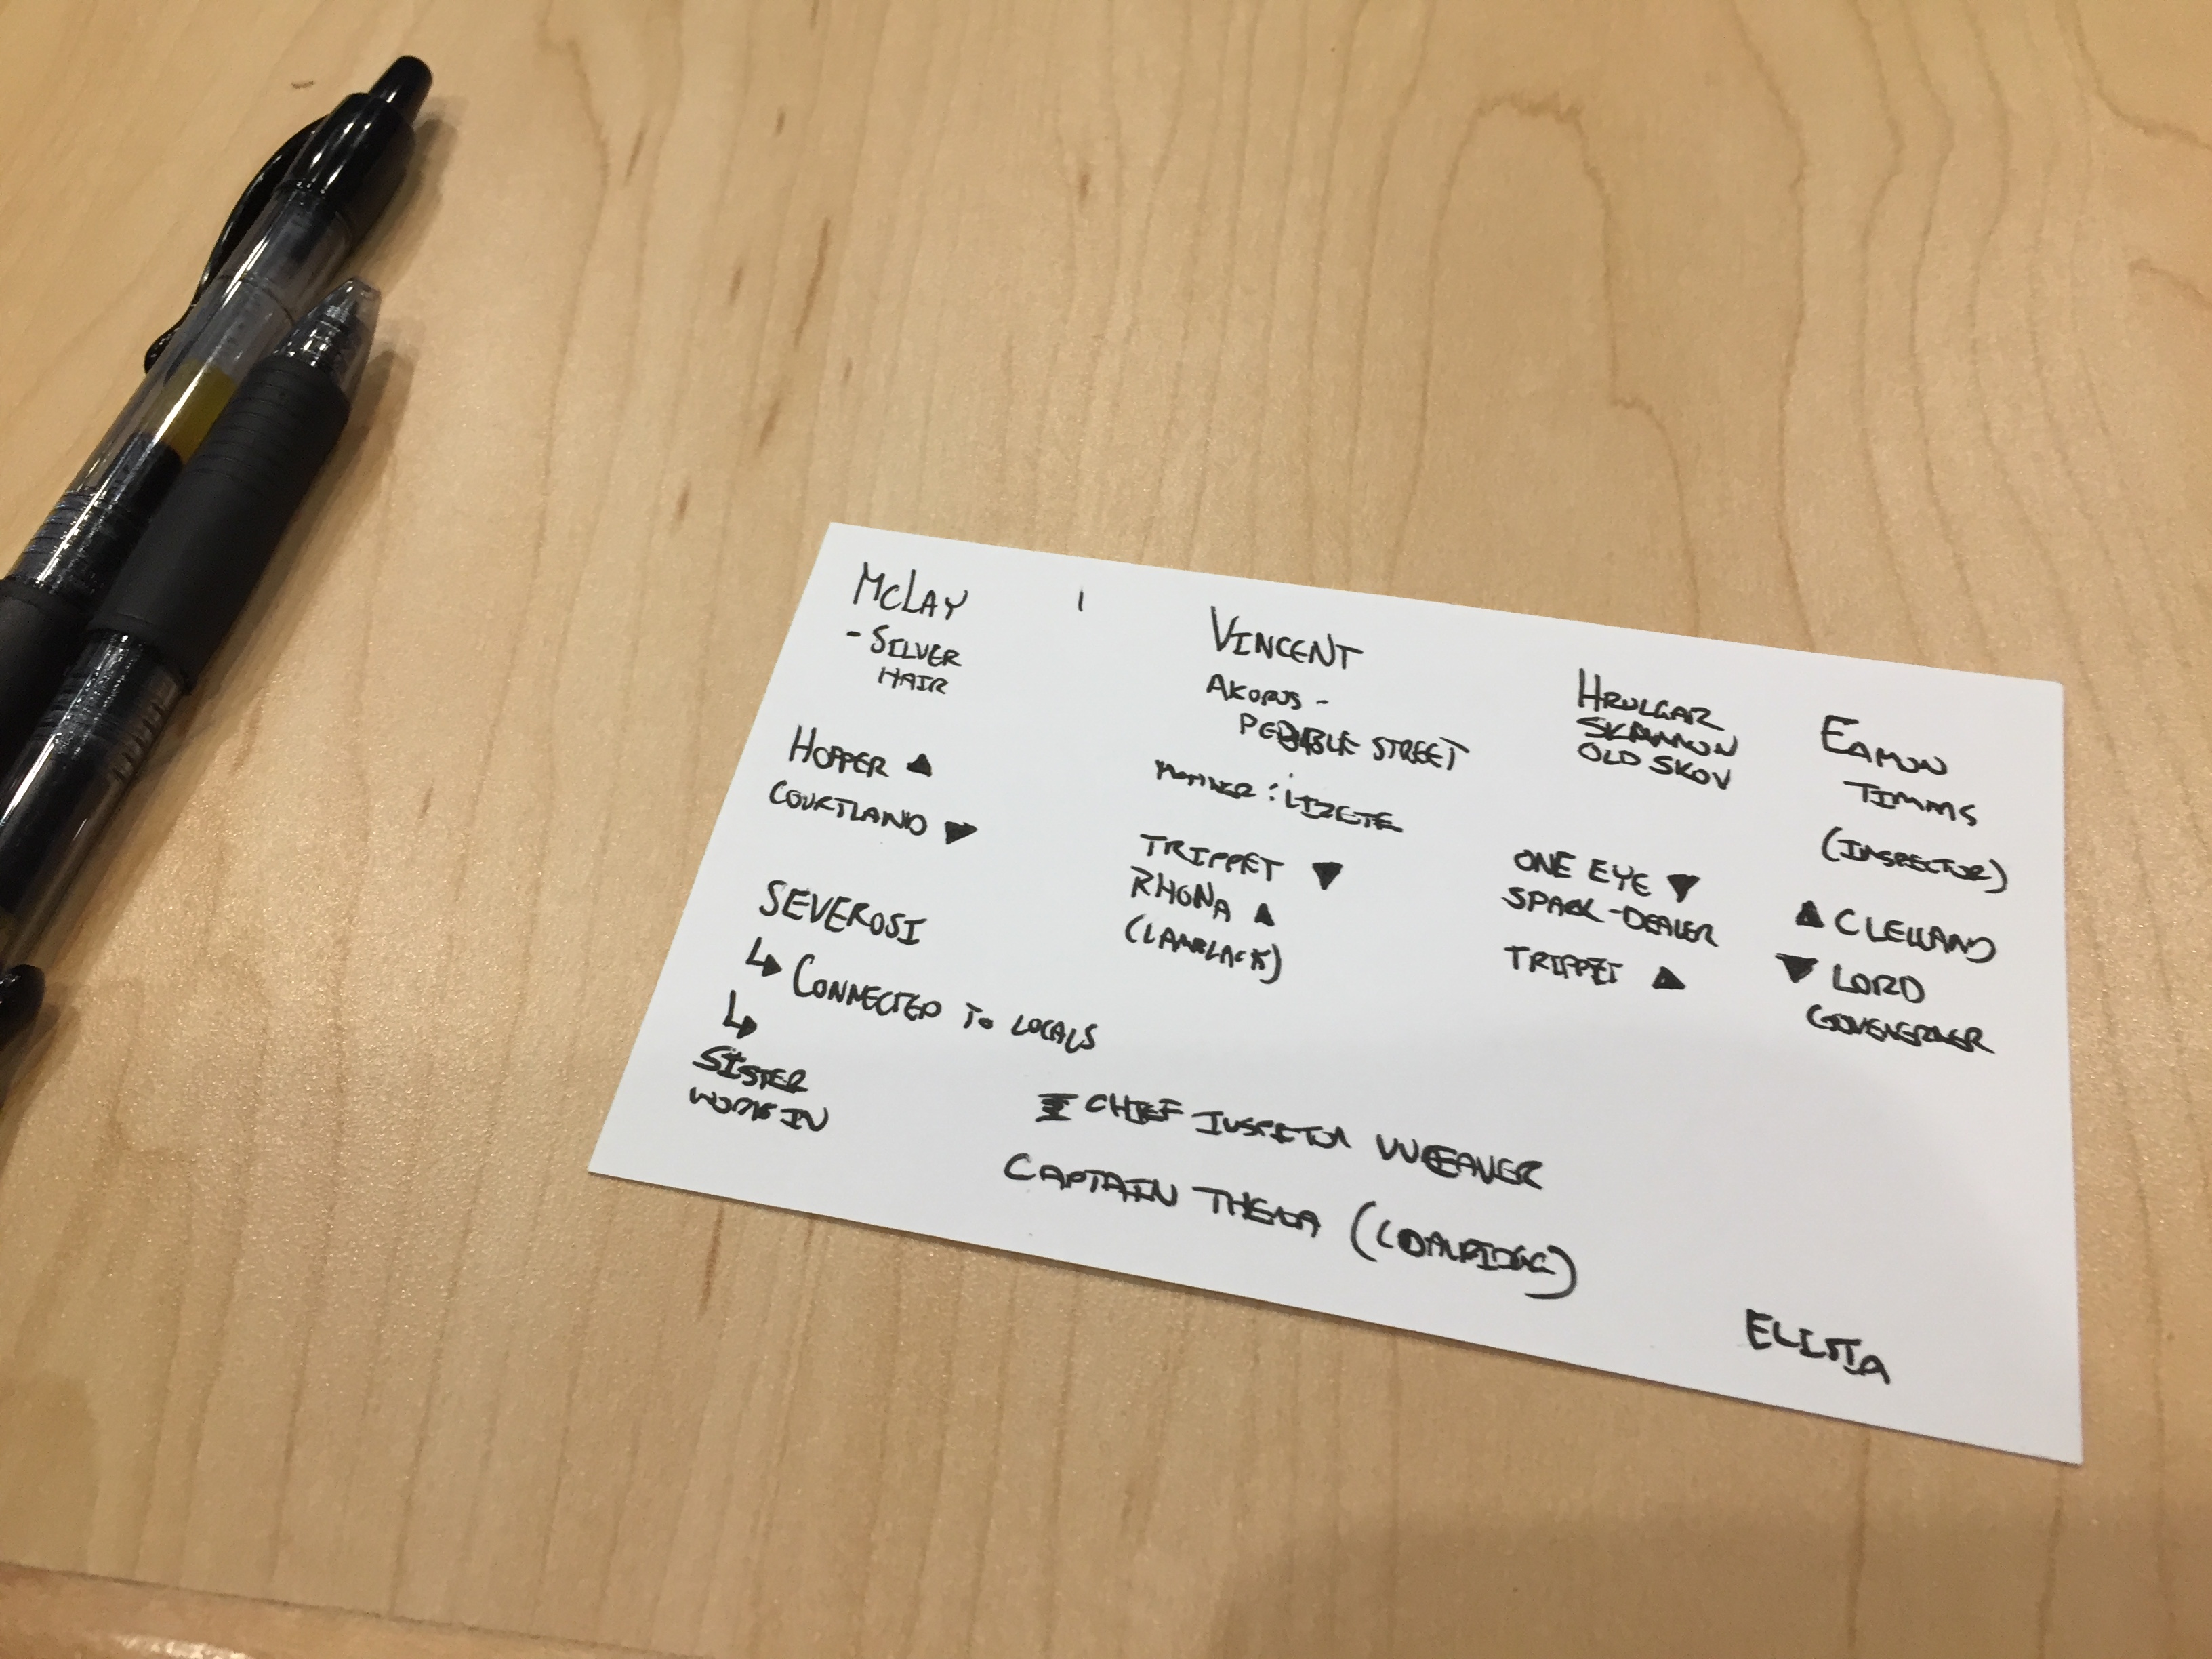 McLAY
- SILVER
HAIR
HOPPER ▲
COURTLAND ▼
SEVEROSI
↳ CONNECTED TO LOCALS
↳
SISTER
WORK IN
VINCENT
AKOROS -
PEBBLE STREET
MOTHER : LIZETE
TRIPPET ▼
RHONA ▲
(LAMBLACK)
HRULGAR
SKANNON
OLD SKOV
ONE EYE ▼
SPARK-DEALER
TRIPPET ▲
EAMON
TIMMS
(INSPECTOR)
▲ CLELLAND
▼ LORD
GOVENERNER
CHIEF INSPECTOR WEAVER
CAPTAIN (COALRIDGE)